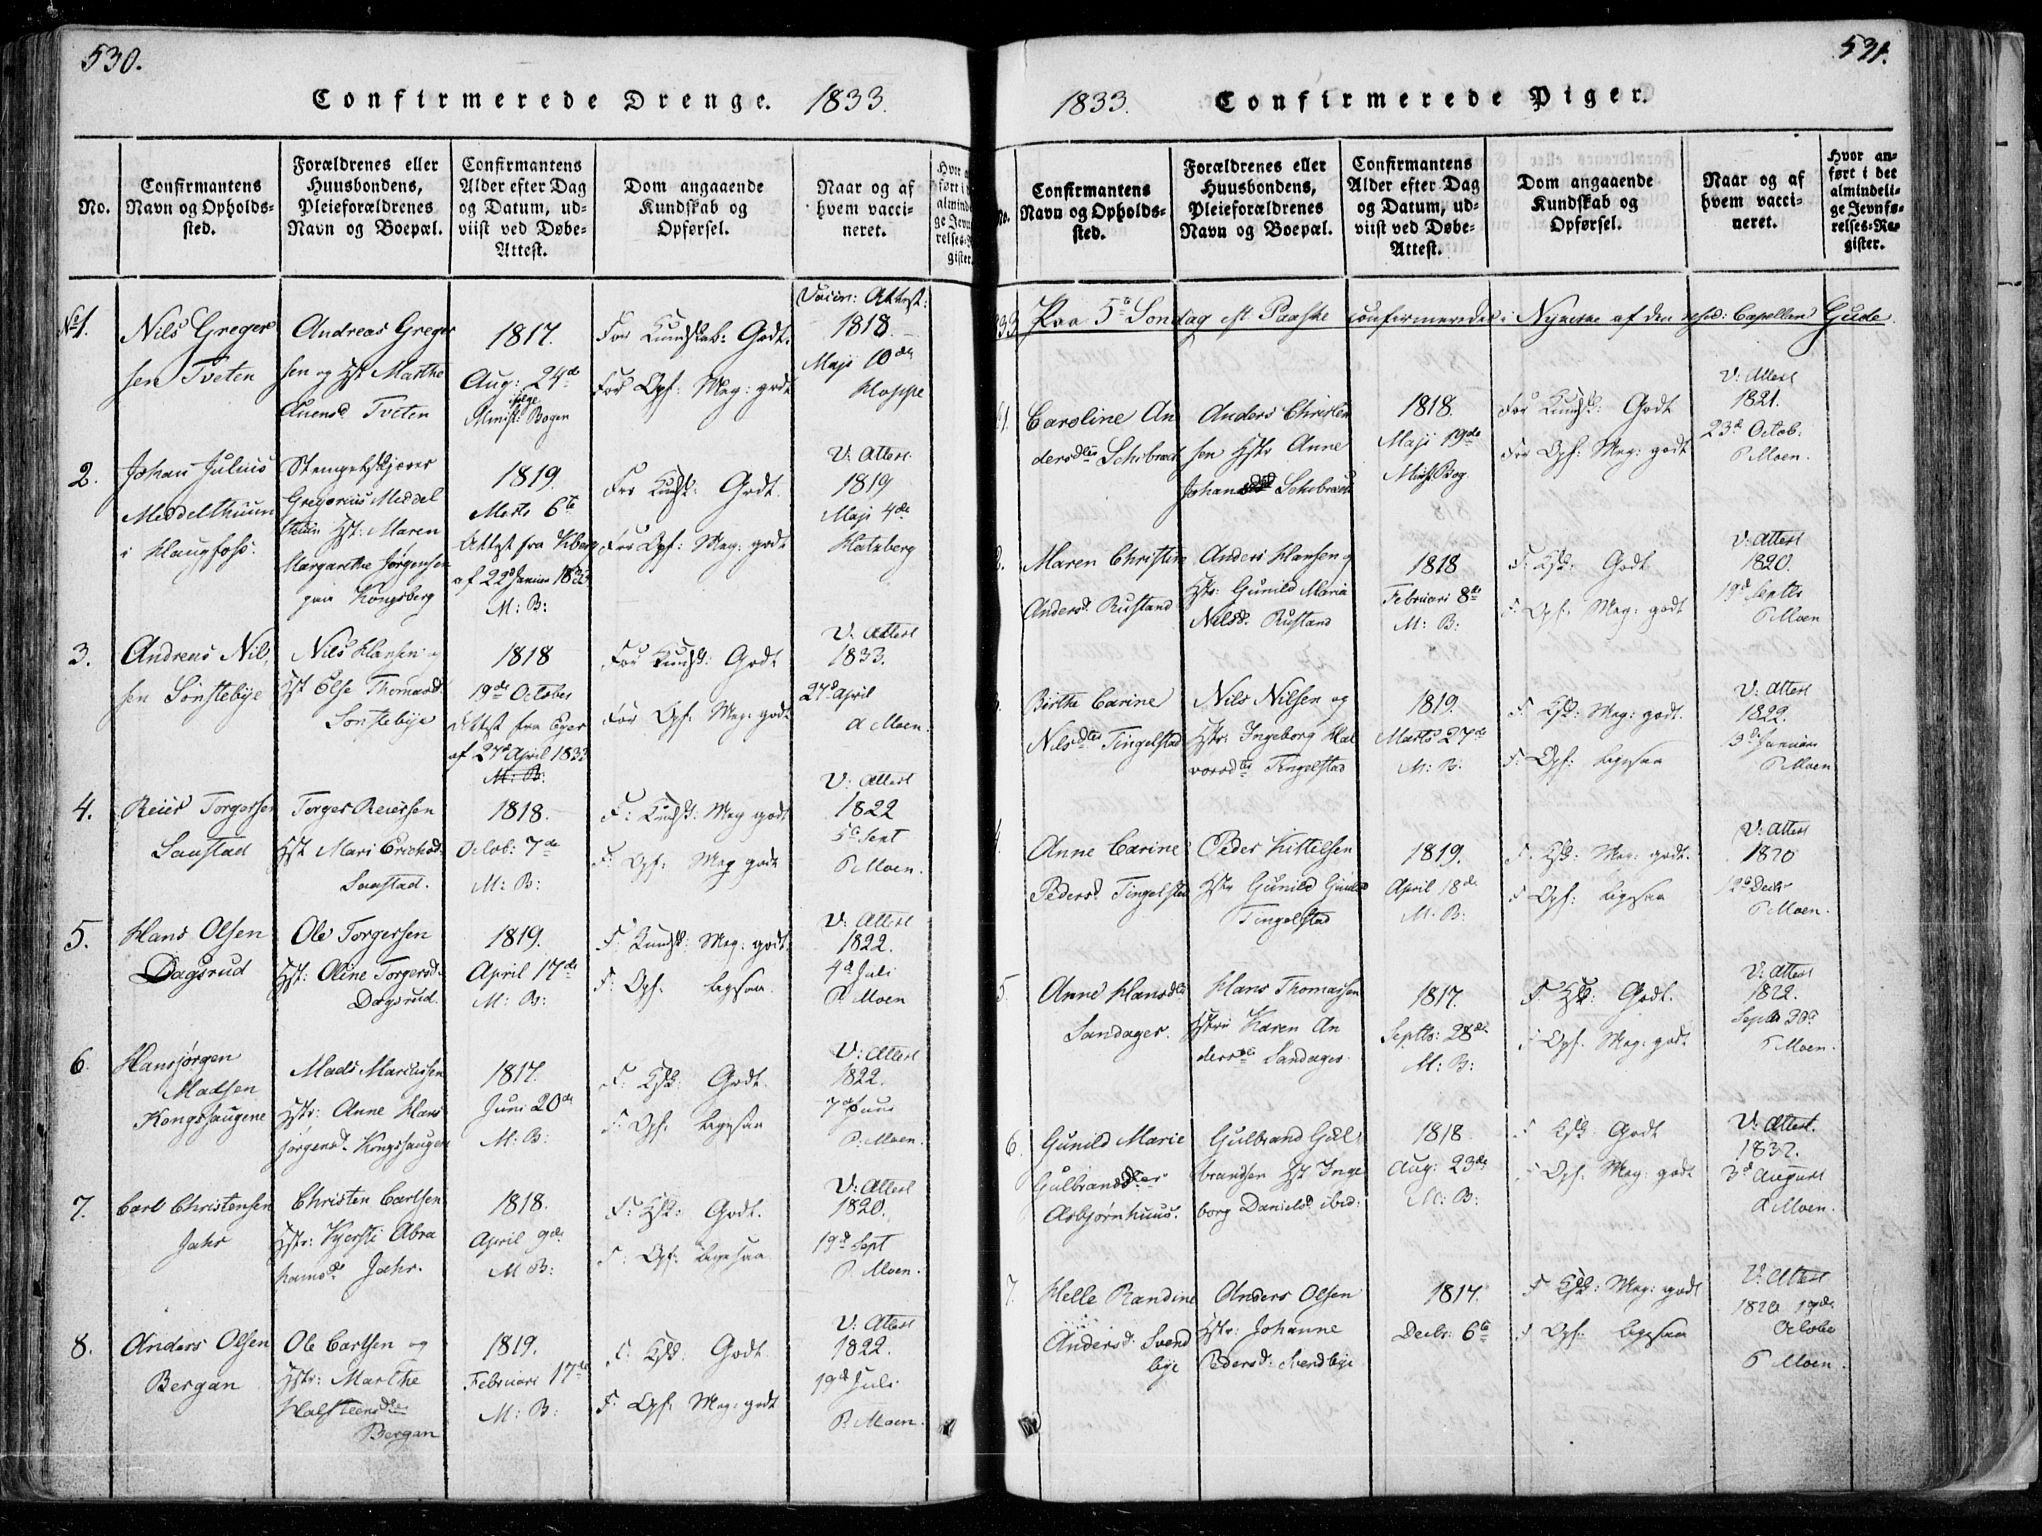 530.
Confirmerede Drenge. 1833.
No.
Confirmantens
Navn og Opholds-
sted.
Forældrenes eller
Huusbondens,
Pleieforældrenes
Navn og Boepæl.
Confirmantens
Alder efter Dag
og Datum, ud-
viist ved Døbe-
Attest.
Dom angaaende
Kundskab og
Opførsel.
Naar og af
hvem vacci-
neret.
No 1.
Nils Greger
sen Tveten
Andreas Greger
sen og Hst Marthe
Tveten
1817.
Aug: 24de
ifølge
Minist: Bogen
For Kundskab: Godt.
For Opf: Meg: godt
Vaccin: Attest:
1818.
Maji 10de
Hoppe
2.
Johan Julius
Meddelthuun
i Haugfoss:
Stempelskjærer
Gregorius Meddel
thuun Hst: Maren
Margarethe Jørgensen
paa Kongsberg
1819.
Marts 6te
Attest fra Kberg
af 22d Januar 1833
M: B:
For Kundsk: Godt.
For Opf: Meg: godt
V: Attest:
1819
Maji 4de
Hatzberg
3.
Andreas Nil,
sen Sønstebye
Nils Hansen og
Hst Else Thomasd.
Sønstebye
1818
19de October
Attest fra Eger
af 27d April 1833
M: B:
For Kundsk: Godt
For Opf: Meg: godt
V: Attest
1833.
27d April
A Moen.
4.
Reier Torgersen
Saastad
Torger Reiersen
Hst Mari Erichsd.
Saastad.
1818.
Octob: 7de
M: B:
F: Kundsk: Meg godt
F: Opf: Meg godt
V: Attest
1822
5te Sept
P. Moen.
5.
Hans Olsen
Dagsrud
Ole Torgersen
Hst: Oline Torgersd.
Dagsrud.
1819.
April 17de
M: B:
F: Kundsk: Meg: godt.
F: Opf: ligesaa.
V: Attest
1822.
4d Juli
P. Moen
6.
Hansjørgen
Madsen
Kongshaugene
Mads Marcusen
Hstr: Anne Hans
jørgensd. Kongshaugen
1817.
Juni 20de
M: B:
F: Ksk: Godt.
F: Opf: ligesaa
V: Attest
1822.
7d Juni
P. Moen.
7.
Carl Christensen
Jahr
Christen Carlsen
Hstr: Kjersti Abra
hamsd. Jahr.
1818.
April 9de
M B:
F: Ksk: Godt.
F: Opf: ligesaa
V: Attest
1820.
19d Sept
P. Moen.
8.
Anders Olsen
Bergan
Ole Carlsen og
Hstr: Marthe
Halsteensd.
Bergan
1819.
Februari 17de
M: B:
F: Ksk: Godt
F: Opf: Meg: godt
V: Attest
1822.
19d Juli
P. Moen.
531.
1833. Confirmerede Piger.
No.
Confirmantens
Navn og Opholds-
sted.
Forældrenes eller
Huusbondens,
Pleieforældrenes
Navn og Boepæl.
Confirmantens
Alder efter Dag
og Datum, ud-
viist ved Døbe-
Attest.
Dom angaaende
Kundskab og
Opførsel.
Naar og af
hvem vacci-
neret.
Hvor an-
ført i det
almindeli-
ge Jevnfø-
relses-Re-
gister.
Paa 5te Søndag eft Paaske confirmerede i Nykirke af den resid: Capellan Gude
1.
Caroline An
dersdtr Schibræt
Anders Christen
sen Hstr Anne
Johansd Schibræt
1818.
Maji 19de
Minst Bog
For Kundsk: Godt
For Opf: Meg: godt
V: Attest
1821.
23d Octob:
P. Moen.
2.
Maren Christine
Andersd. Rustand
Anders Hansen og
Hstr: Gunild Maria
Nilsd. Rustand
1818
Februari 8de
M: B:
F: Ksk: Godt
F: Opf: Meg: godt
V: Attest
1820.
19d Septbr
P. Moen
3.
Birthe Carine
Nilsdtr Tingelstad
Nils Nilsen og
Hstr: Ingeborg Hal
vorsdtr Tingelstad
1819.
Marts 27de
M: B:
F: Ksk: Meg: godt.
F: Opf: ligesaa
V: Attest
1822.
3d Januar
P. Moen
4.
Anne Carine
Pedersd. Tingelstad
Peder Kittilsen
Hstr Gunild
Tingelstad
1819.
April 18de
M. B:
F: Ksk: Meg: godt.
F: Opf: ligesaa
V: Attest
1820
12d Decbr
P. Moen.
5.
Anne Hansdtr
Sandager.
Hans Thomassen
Hstru Karen An
dersdtr Sandager.
1817.
Septbr: 28de
M: B:
F: Ksk: Godt.
F Opf: Meg: godt
V: Attest
1822.
Septb 30d
P. Moen.
6.
Gunild Marie
Gulbrandsdter
Asbjørnhuus.
Gulbrand Gul
brandsen Hst Inge
borg Danielsd ibid:
1818
Aug: 23de
M: B:
F Ksk: Godt
F Opf: Meg: godt
V: Attest.
1832.
3d August
A Moen.
7.
Helle Randine
Andersd. Svend
bye
Anders Olsen
Hstr: Johanne
Pedersd: Svendbye
1817.
Decbr: 6te
F Ksk: Meg: godt
F Opf: ligesaa
V: Attest
1820 19de
Octobr
P. Moen.